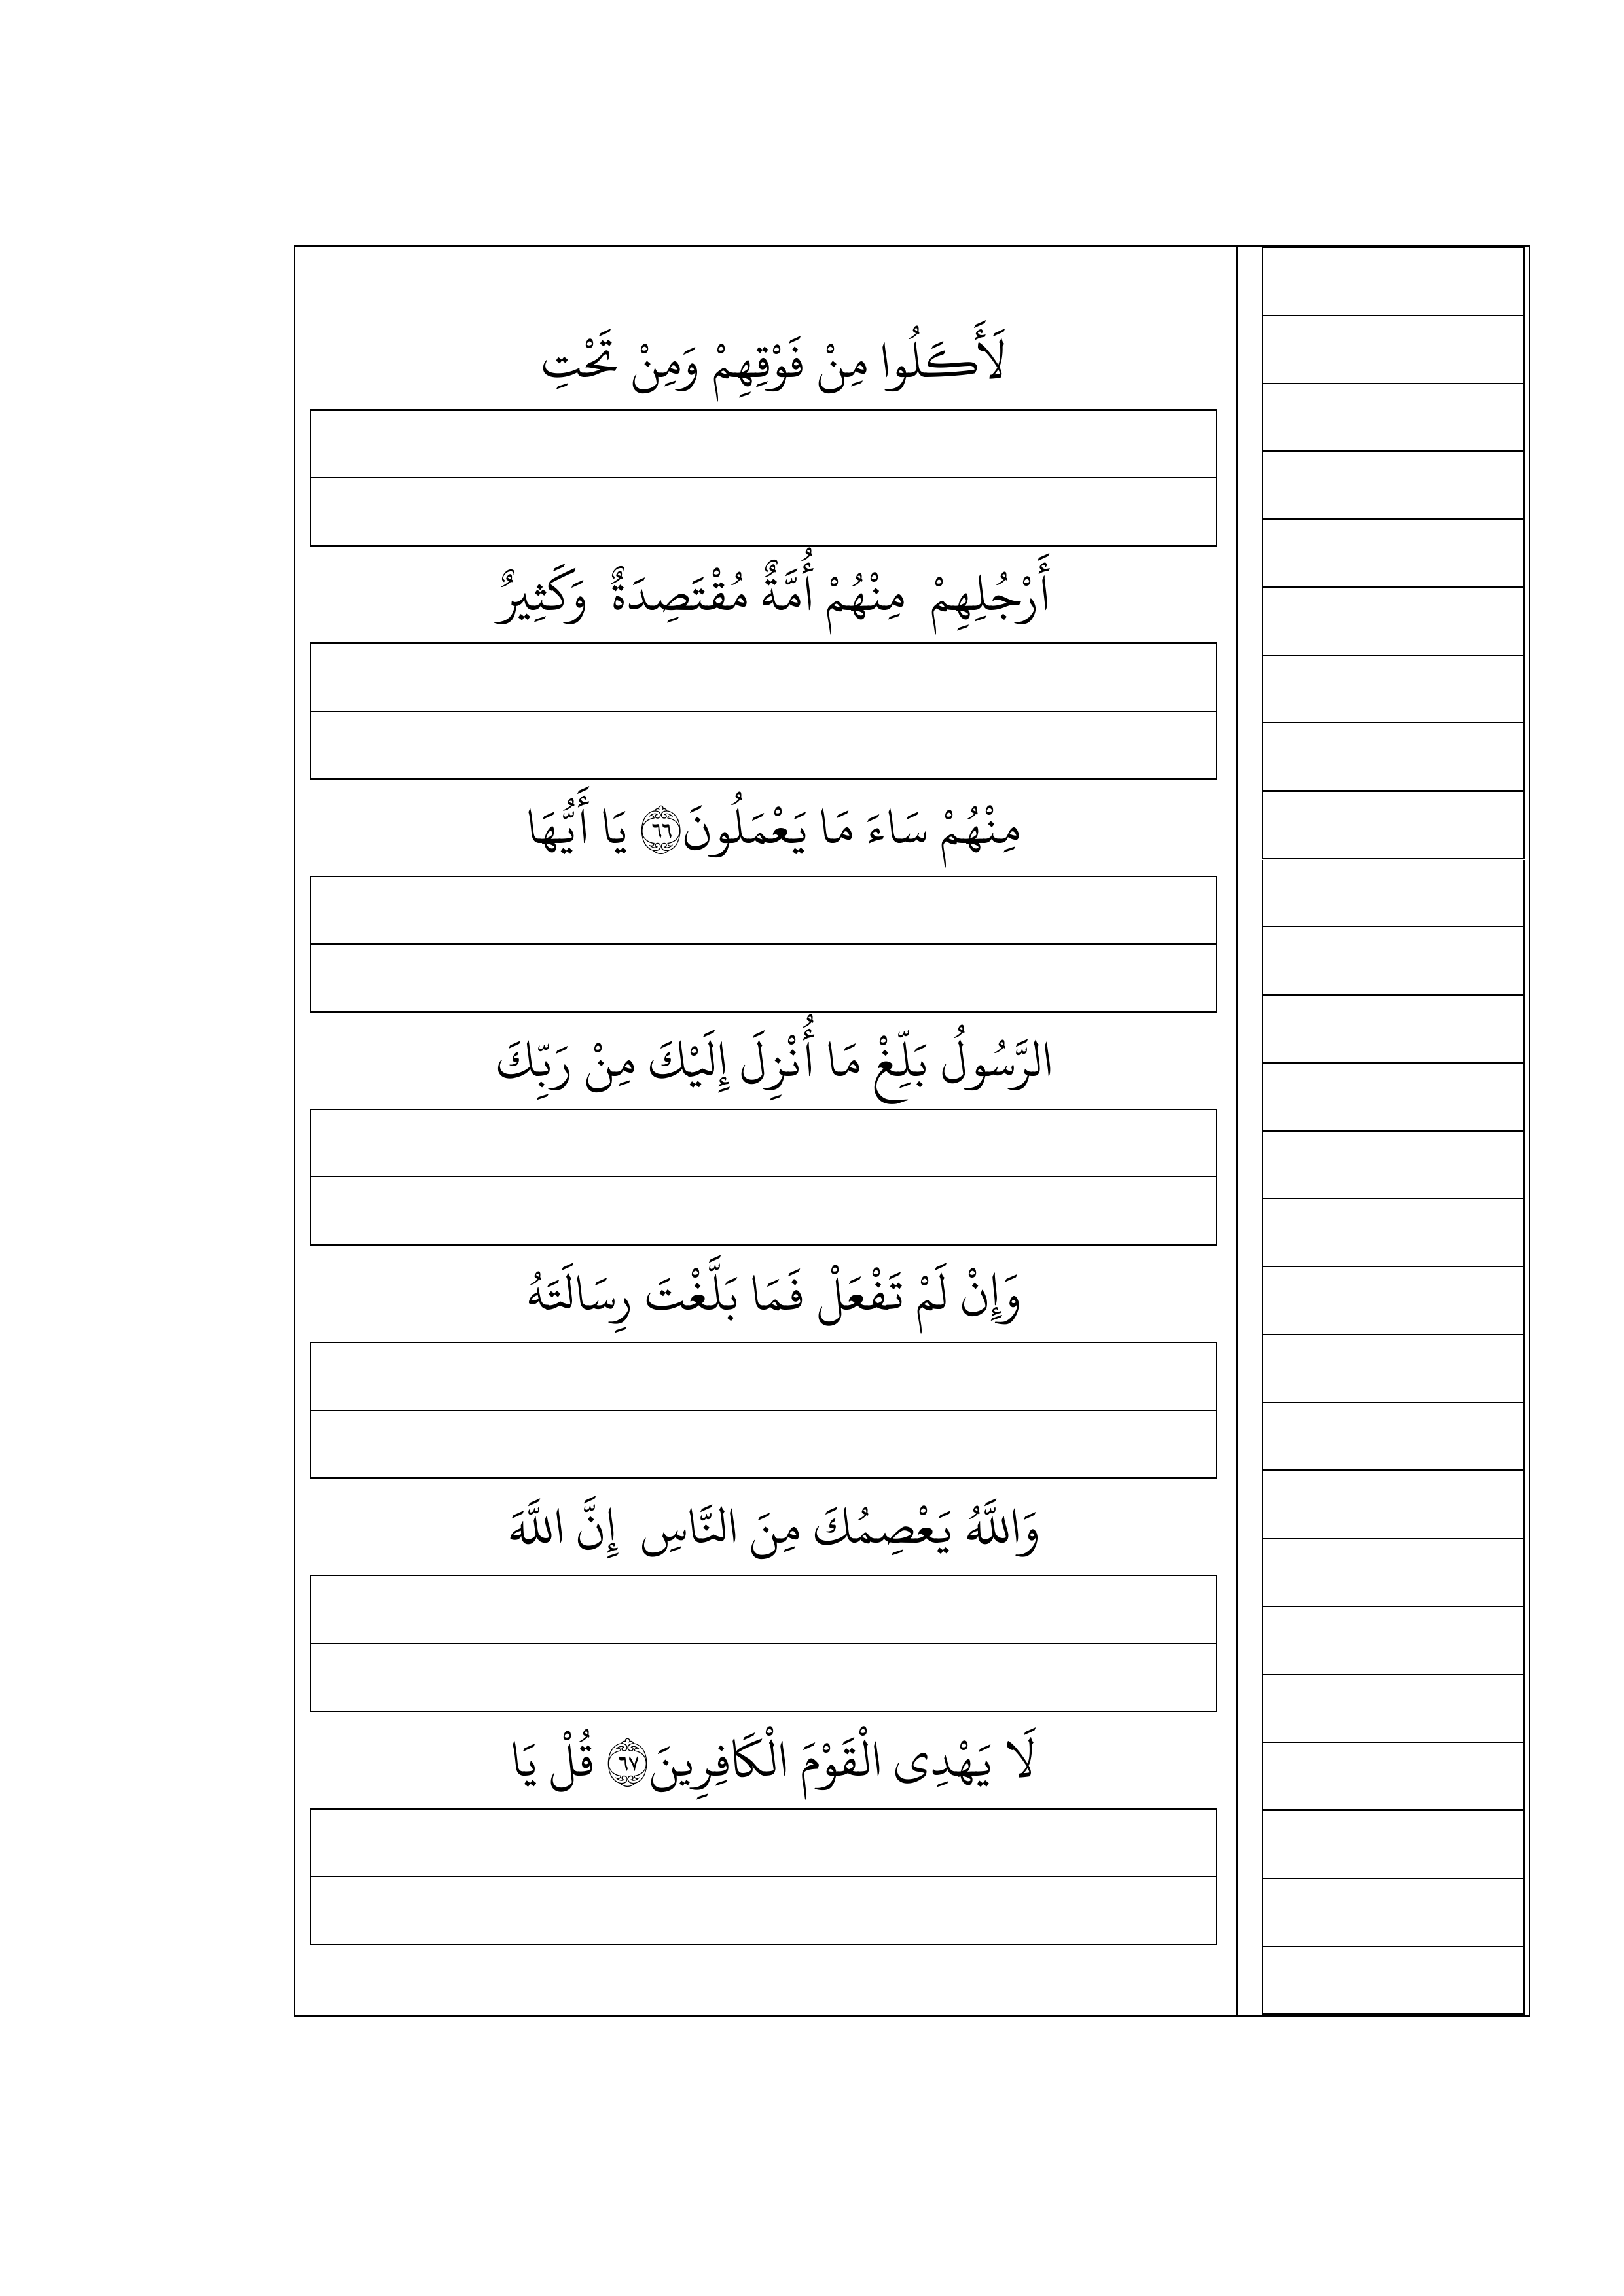 لَأَكَلُوا مِنْ فَوْقِهِمْ وَمِنْ تَحْتِ
أَرْجُلِهِمْ مِنْهُمْ أُمَّةٌ مُقْتَصِدَةٌ وَكَثِيرٌ
مِنْهُمْ سَاءَ مَا يَعْمَلُونَ ٦٦ يَا أَيُّهَا
الرَّسُولُ بَلِّغْ مَا أُنْزِلَ إِلَيْكَ مِنْ رَبِّكَ
وَإِنْ لَمْ تَفْعَلْ فَمَا بَلَّغْتَ رِسَالَتَهُ
وَاللَّهُ يَعْصِمُكَ مِنَ النَّاسِ إِنَّ اللَّهَ
لَا يَهْدِى الْقَوْمَ الْكَافِرِينَ ٦٧ قُلْ يَا